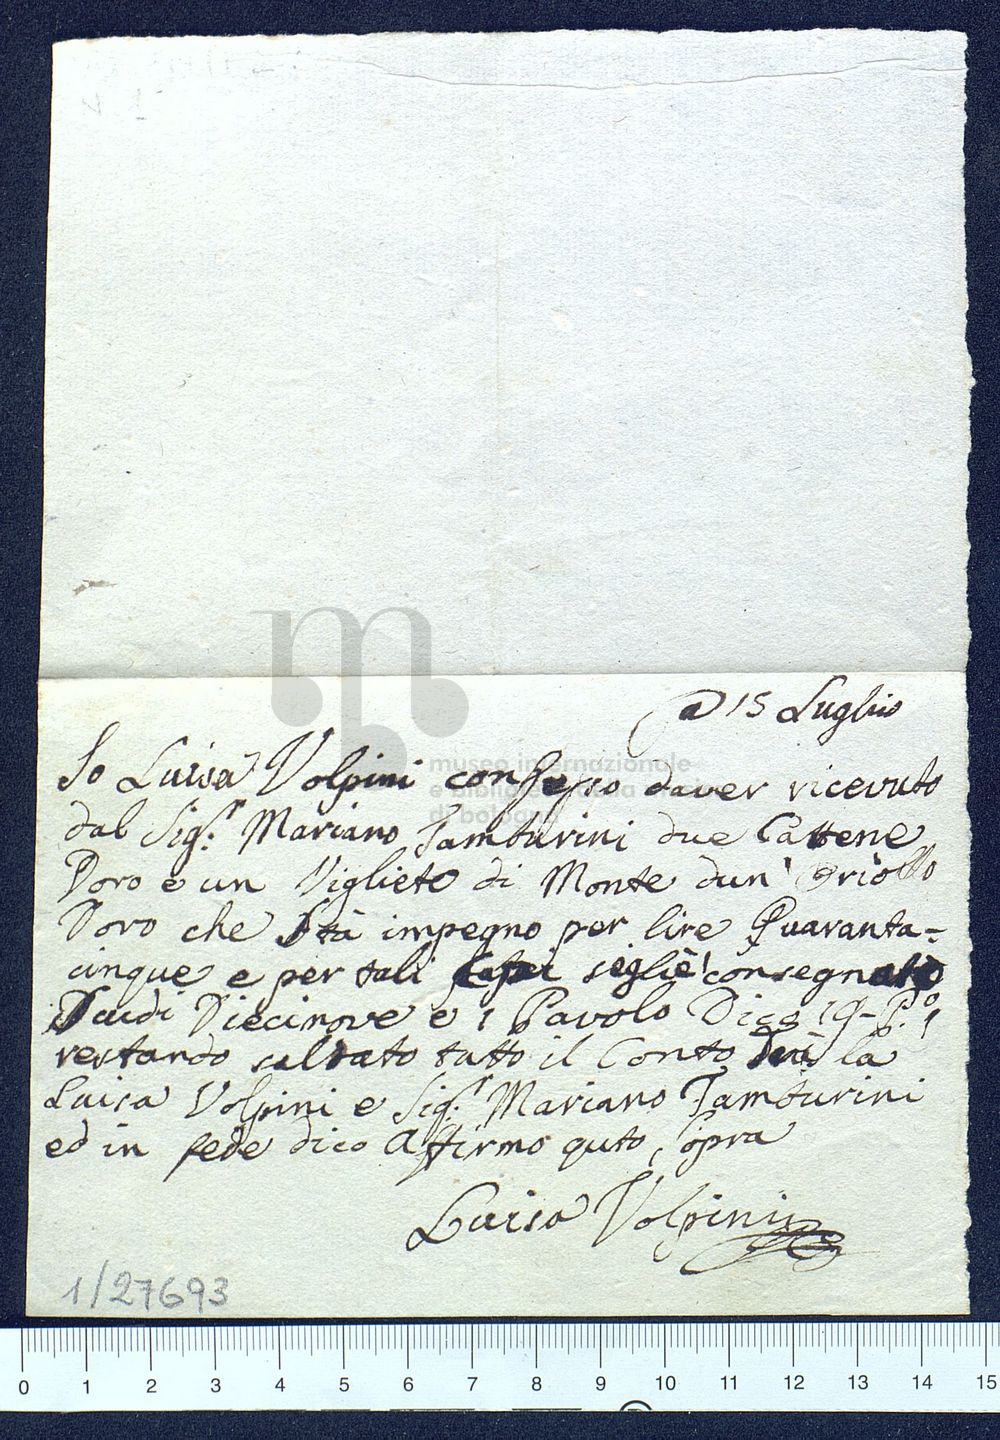 A 15 Luglio
Io Luisa Volpini confesso daver ricevuto
dal Sig.r Mariano Tamburini due Cattene
Doro e un Viglieto di Monte dun' Oriollo
Doro che Stà impegno per lire Quaranta-
cinque e per tali Capi seglie consegnato
Scudi Diecinove e 1 Pavolo Dico 19-P.o 1
restando saldato tutto il Conto Trà la
Luisa Volpini e Sig.r Mariano Tamburini
ed in fede dico Affirmo quto, sopra
Luisa Volpini
1/27693
museo internazionale
e biblioteca della musica
di bologna
0 1 2 3 4 5 6 7 8 9 10 11 12 13 14 15